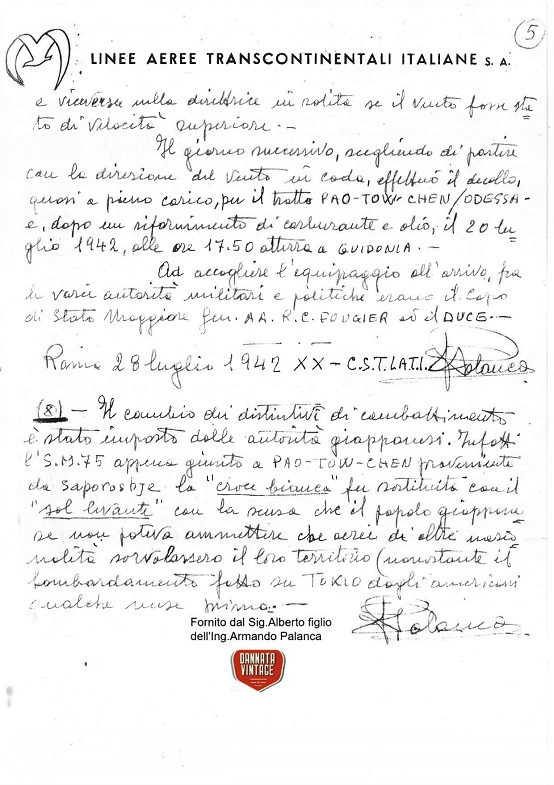 5
LINEE AEREE TRANSCONTINENTALI ITALIANE S. A.
e viceversa nella direttrice in salita se il vento fosse sta=
to di velocità superiore. -
Il giorno successivo, scegliendo di partire
con la direzione del vento in coda, effettuò il decollo,
quasi a pieno carico, per il tratto PAO-TOW-CHEN/ODESSA-
e, dopo un rifornimento di carburante e olio, il 20 lu=
glio 1942, alle ore 17.50 atterra a GUIDONIA. -
Ad accogliere l'equipaggio all'arrivo, fra
le varie autorità militari e politiche erano il Capo
di Stato Maggiore Gen. AA. R.C. FOUGIER ed il DUCE. -
Roma 28 luglio 1942 XX - C.S.T. L.A.T.I. Palanca
(8) - Il cambio dei distintivi di combattimento
è stato imposto dalle autorità giapponesi. Infatti
l'S.M.75 appena giunto a PAO-TOW-CHEN proveniente
da Saporoshje la "croce bianca" fu sostituita con il
"sol levante" con la scusa che il popolo giappone
se non poteva ammettere che aerei di altre nazio=
nalità sorvolassero il loro territorio (nonostante il
bombardamento fatto su TOKIO dagli americani
qualche mese prima. -
Palanca
Fornito dal Sig.Alberto figlio
dell'Ing.Armando Palanca
DANNATA
VINTAGE